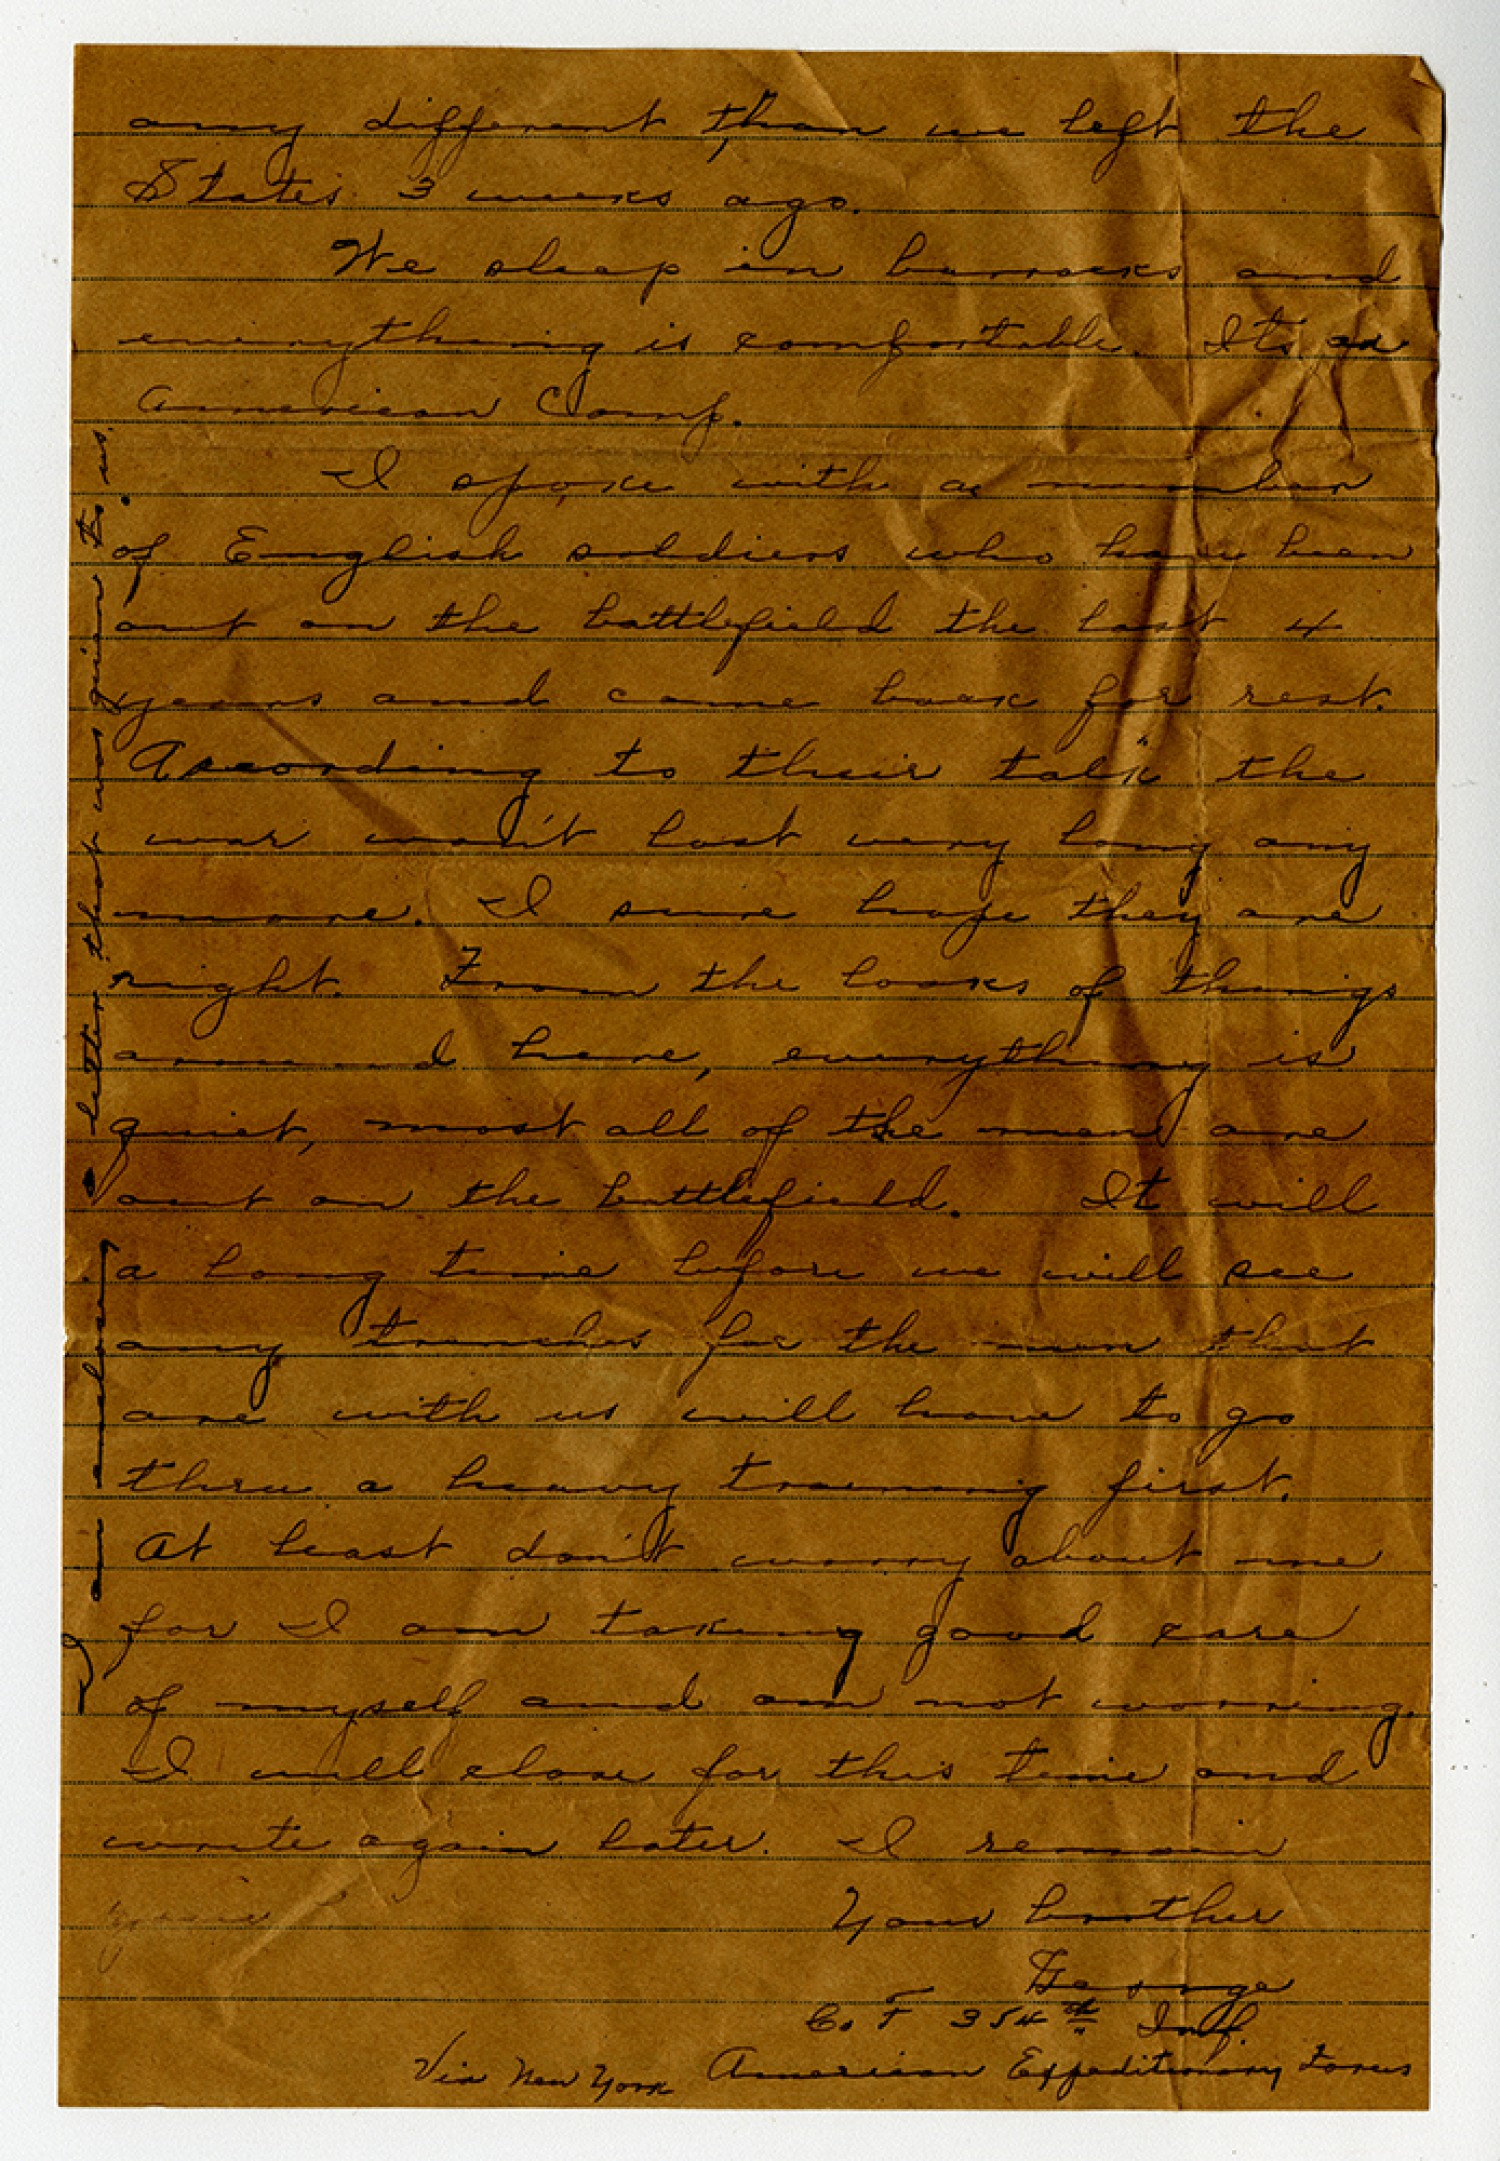 any different than we left the
States 3 weeks ago.
We sleep in barracks and
everything is comfortable. Its an
American Camp.
I spoke with a number
of English soldiers who have been
out on the battlefield the last 4
years and came back for rest.
According to their talk the
war won't last very long any
more. I sure hope they are
right. From the looks of things
around here, everything is
quiet, most all of the men are
out on the battlefield. It will
a long time before we will see
any trenches for the men that
are with us will have to go
thru a heavy training first.
At least don't worry about me
for I am taking good care
of myself and am not worring.
I will close for this time and
write again later. I remain
Your brother
George
Co. F 354th Inf.
Via New York American Expeditionary Forces
I am enclosing a letter that was given to us.